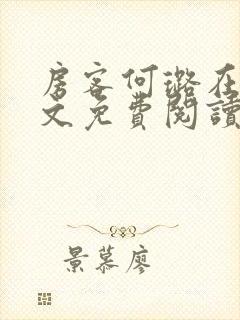 房客何璐在
文免費閱讀
景慕廖